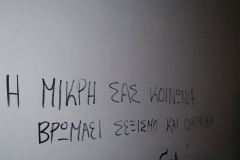 Η ΜΙΚΡΗ ΣΑΣ ΚΟΙΝΩΝΙΑ
ΒΡΩΜΑΕΙ ΣΕΞΙΣΜΟ ΚΑΙ ΟΜΟΦΟΒΙΑ